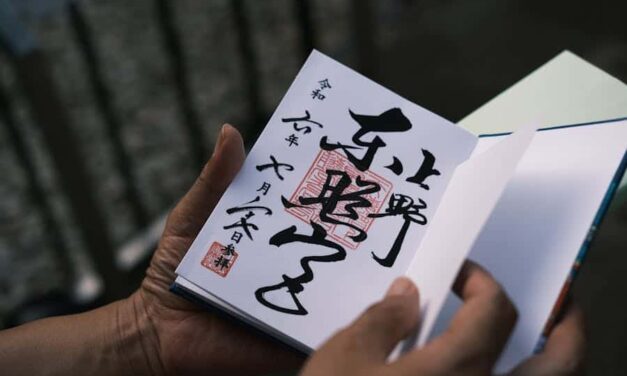 上野
東照宮
令和六年七月 日参拝